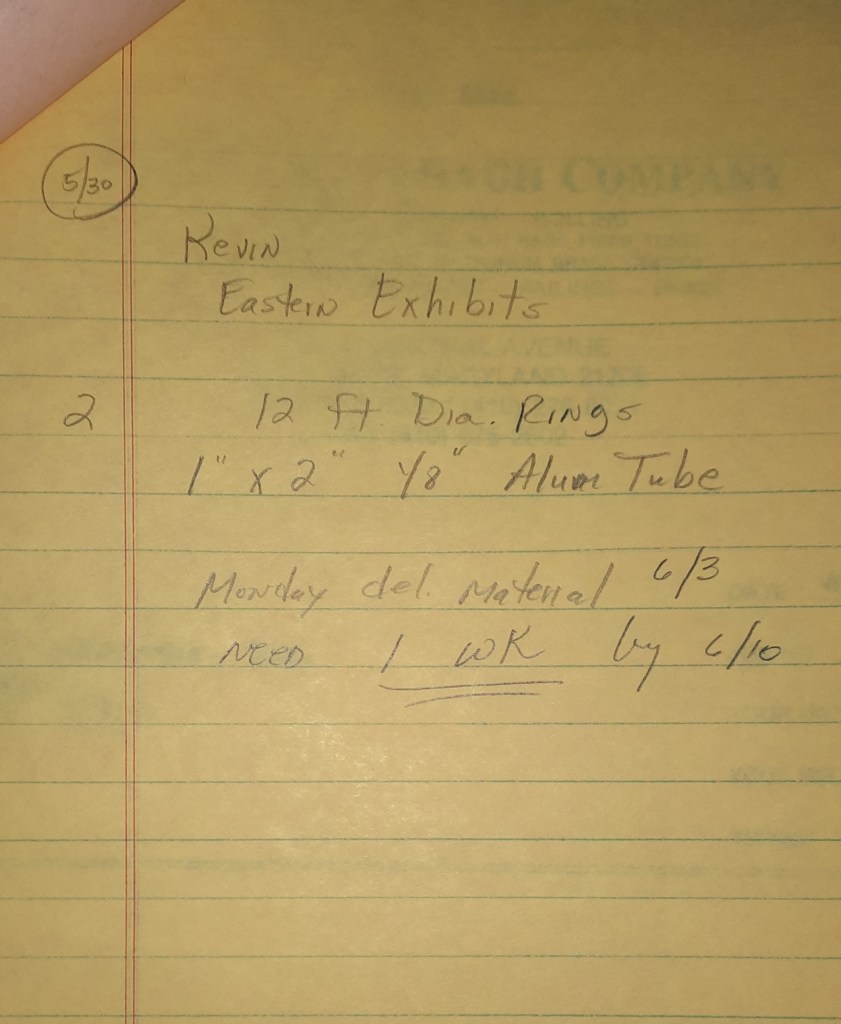 5/30
Kevin
Eastern Exhibits
2 12 ft. Dia. Rings
1" x 2" 1/8" Alum Tube
Monday del. material 6/3
NEED 1 WK by 6/10
COMPANY
AVENUE
MARYLAND